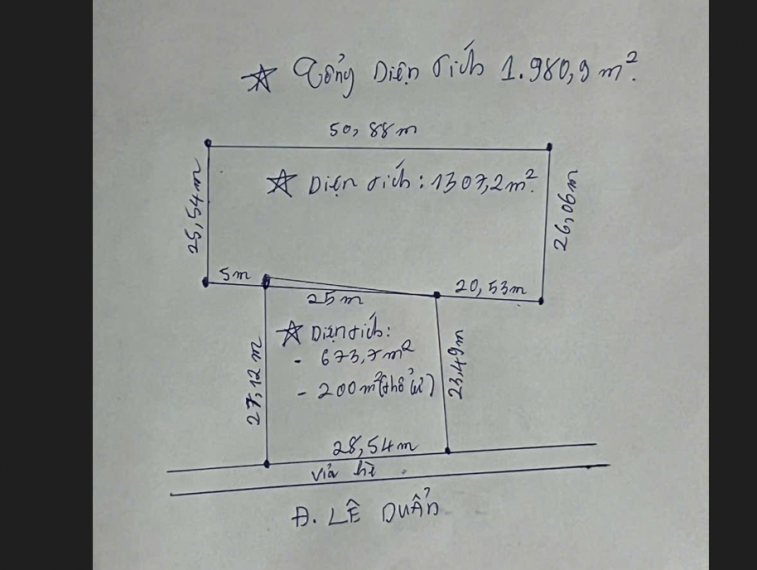 Tổng Diện tích 1.980,9 m².
50,88m
25,54m
Diện tích: 1307,2m².
26,06m
5m
25m
20,53m
27,12m
Diện tích:
- 673,7m²
- 200m²(thổ cư)
23,49m
28,54m
vỉa hè
Đ. LÊ DUẨN